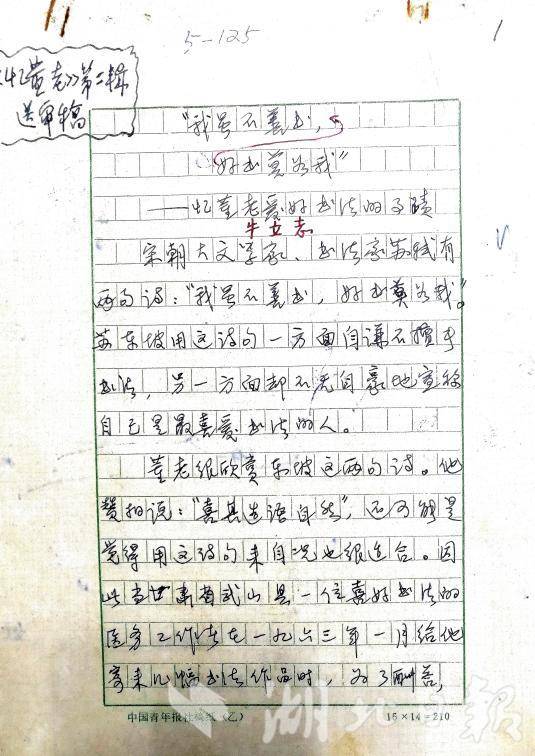 5-125
1
《忆董老》第二辑
送审稿
"我虽不善书，
好书莫如我"
——忆董老爱好书法的事蹟
牛立志
宋朝大文学家、书法家苏轼有
两句诗："我虽不善书，好书莫如我"。
苏东坡用这诗句一方面自谦不擅于
书法，另一方面却不无自豪地宣称
自己是最喜爱书法的人。
董老很欣赏东坡这两句诗。他
赞扬说："喜其造语自然"，还可能是
觉得用这诗句来自况也很适合。因
此当甘肃省武山县一位喜好书法的
医务工作者在一九六三年一月给他
寄来几幅书法作品时，为了酬答，
中国青年报社稿纸（乙）
15×14=210
湖北日报